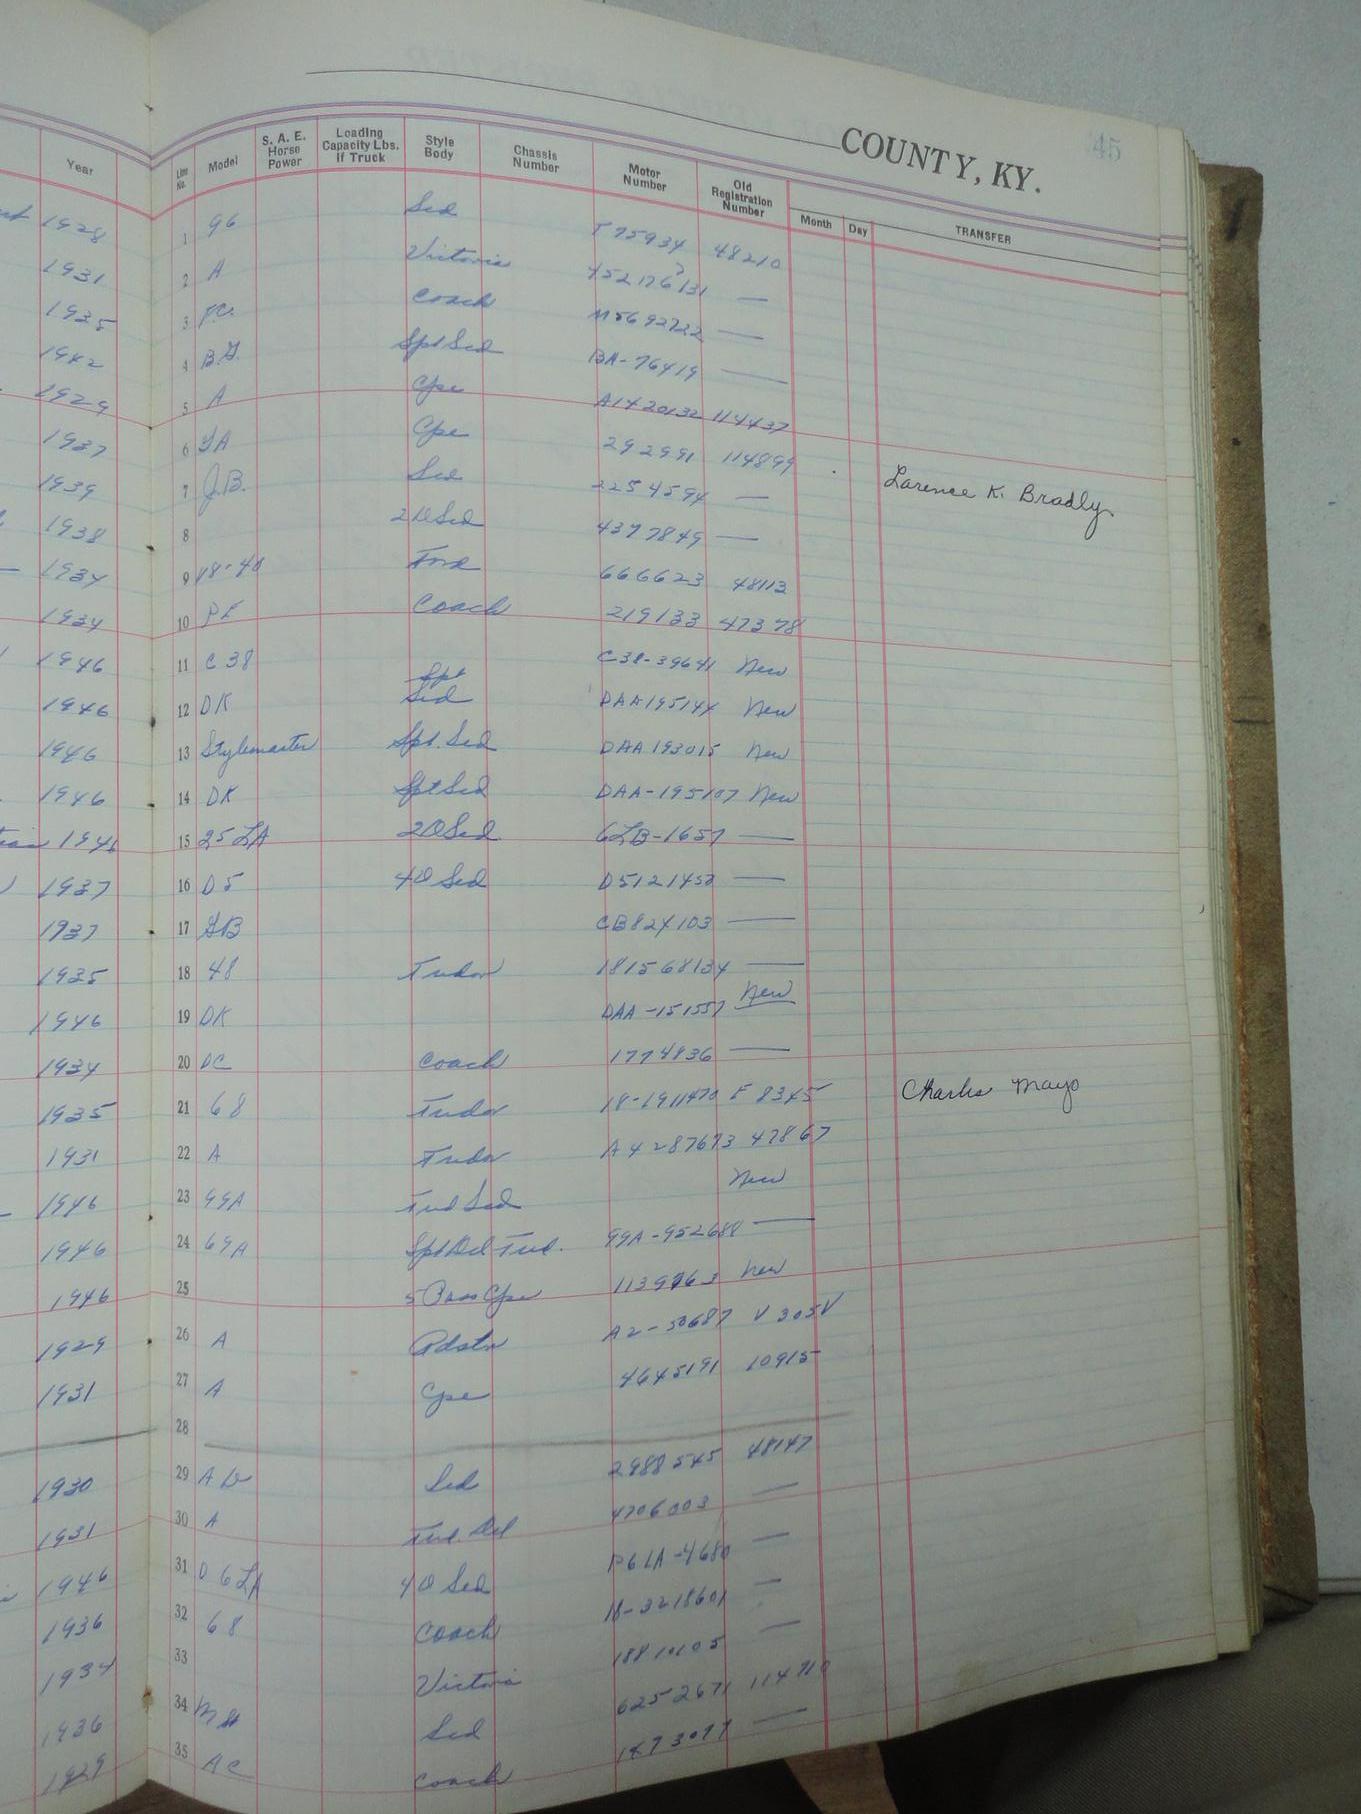 45
COUNTY, KY.
Year Line No. Model S. A. E. Horse Power Loading Capacity Lbs. If Truck Style Body Chassis Number Motor Number Old Registration Number Month Day TRANSFER
1928 1 96 Sed T75934 48210
1931 2 A Victoria 452176131 —
1935 3 Coach M5692722 —
1942 4 B.G. Spt Sed BA-76419 —
1929 5 A Cpe A1420132 114437
1937 6 GA Cpe 292991 114899
1939 7 J.B. Sed 2254594 — Larence K. Bradly
1938 8 2 D Sed 4377849 —
1934 9 18-40 Ford 666623 48113
1934 10 PE Coach 219133 47378
1946 11 C38 C38-39641 New
1946 12 DK Spt Sed DAA195144 New
1946 13 Stylemaster Spt. Sed DAA193015 New
1946 14 DK Spt Sed DAA-195107 New
1946 15 25 LA 2D Sed 6LB-1657 —
1937 16 D5 4D Sed D5121458 —
1937 17 GB CB824103 —
1935 18 48 Tudor 181568134 —
1946 19 DK DAA-151557 New
1934 20 DC Coach 1774836 —
1935 21 68 Tudor 18-1911470 F 8345 Charles Mayo
1931 22 A Tudor A4287673 47867
1946 23 99A Tud Sed New
1946 24 69A Spt Del Tud. 99A-952688 —
1946 25 5 Pass Cpe 1139763 New
1929 26 A Rdstr A2-50687 V305V
1931 27 A Cpe 4645191 10915
28
1930 29 Sed 2988545 48147
1931 30 A Tud. Del 4706003 —
1946 31 D 6 LA 4D Sed P61A-4680 —
1936 32 68 Coach 18-3218601 —
1934 33 Victoria 18810105 —
1936 34 Sed 6252671 114710
1929 35 AC Coach 1473077 —